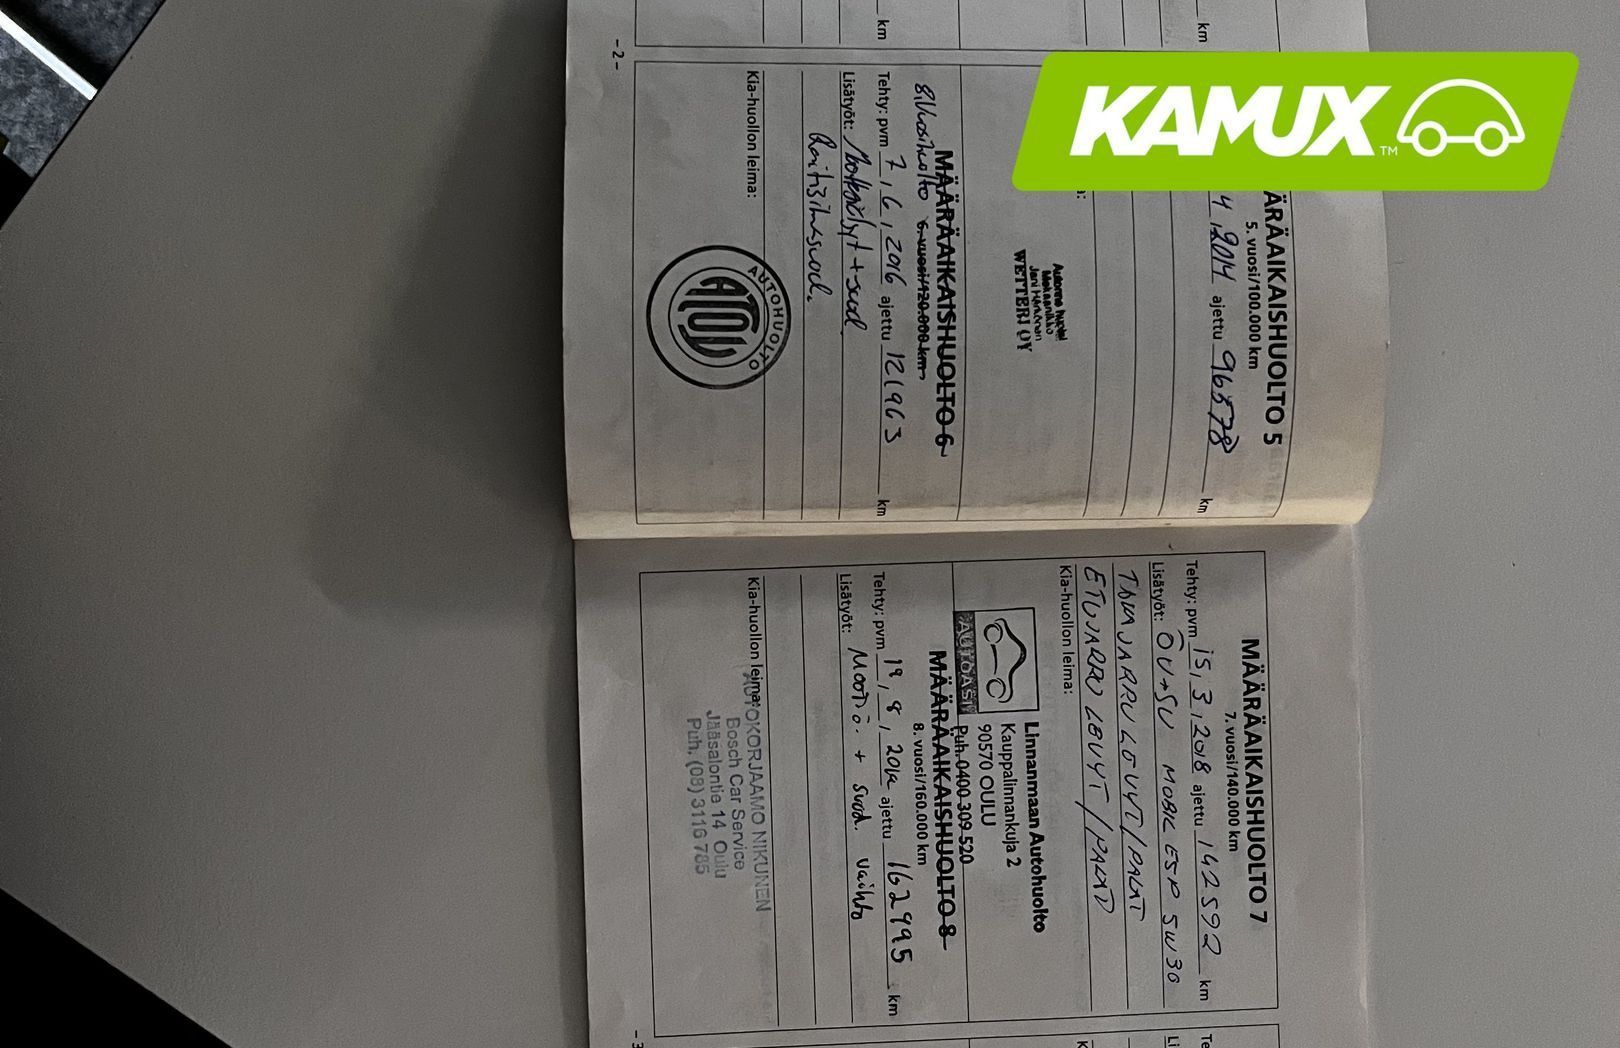 KAMUX
TM
km
km
- 2 -
ÄRÄAIKAISHUOLTO 5
5. vuosi/100.000 km
4 , 2014 ajettu 96578 km
Jani Härkönen
WETTERI OY
MÄÄRÄAIKAISHUOLTO 6
8. Vuosihuolto 6. vuosi/120.000 km
Tehty: pvm 7 , 6 , 2016 ajettu 121963 km
Lisätyöt: +suod
Raitisilmasuod.
Kia-huollon leima:
AUTOHUOLTO
ATOY
AUTOHUOLTO
MÄÄRÄAIKAISHUOLTO 7
7. vuosi/140.000 km
Tehty: pvm 15 , 3 , 2018 ajettu 142592 km
Lisätyöt: ÖV+SU MOBIL ESP 5W30
TAKAJARRU LEVYT/PALAT
ETUJARRU LEVYT/PALAT
Kia-huollon leima:
AUTOASI
Linnanmaan Autohuolto
Kauppalinnankuja 2
90570 OULU
Puh. 0400 309 520
MÄÄRÄAIKAISHUOLTO 8
8. vuosi/160.000 km
Tehty: pvm 19 , 8 , ajettu 162995 km
Lisätyöt: + suod. vaihto
Kia-huollon leima:
AUTOKORJAAMO NIKUNEN
Bosch Car Service
Jääsalontie 14 Oulu
Puh. (08) 3116 785
- 3